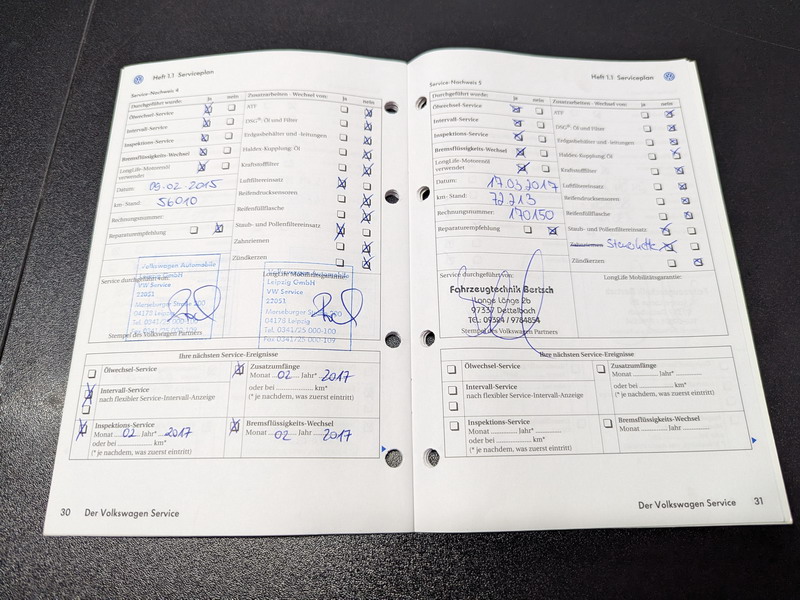 Heft 1.1 Serviceplan
Service-Nachweis 4
Durchgeführt wurde: Ja nein
Ölwechsel-Service
Intervall-Service
Inspektions-Service
Bremsflüssigkeits-Wechsel
LongLife-Motorenöl
verwendet
Datum: 09.02.2015
km-Stand: 56010
Rechnungsnummer:
Reparaturempfehlung
Zusatzarbeiten - Wechsel von: Ja nein
ATF
DSG®-Öl und Filter
Erdgasbehälter und -leitungen
Haldex-Kupplung: Öl
Kraftstofffilter
Luftfiltereinsatz
Reifendrucksensoren
Reifenfüllflasche
Staub- und Pollenfiltereinsatz
Zahnriemen
Zündkerzen
Service durchgeführt von:
LongLife Mobilitätsgarantie:
Volkswagen Automobile
Leipzig GmbH
VW Service
22051
Merseburger Strasse 200
04178 Leipzig
Tel. 0341/25 000-100
Fax 0341/25 000-109
Leipzig GmbH
VW Service
22051
Merseburger Strasse 200
04178 Leipzig
Tel. 0341/25 000-100
Fax 0341/25 000-109
Stempel des Volkswagen Partners
Ihre nächsten Service-Ereignisse
Ölwechsel-Service
Intervall-Service
nach flexibler Service-Intervall-Anzeige
Inspektions-Service
Monat 02 Jahr* 2017
oder bei km*
(* je nachdem, was zuerst eintritt)
Zusatzumfänge
Monat 02 Jahr* 2017
oder bei km*
(* je nachdem, was zuerst eintritt)
Bremsflüssigkeits-Wechsel
Monat 02 Jahr 2017
30 Der Volkswagen Service
Service-Nachweis 5
Heft 1.1 Serviceplan
Durchgeführt wurde: ja nein
Ölwechsel-Service
Intervall-Service
Inspektions-Service
Bremsflüssigkeits-Wechsel
LongLife-Motorenöl
verwendet
Datum: 17.03.2017
km-Stand: 72213
Rechnungsnummer: 170150
Reparaturempfehlung
Zusatzarbeiten - Wechsel von: Ja nein
ATF
DSG®-Öl und Filter
Erdgasbehälter und -leitungen
Haldex-Kupplung: Öl
Kraftstofffilter
Luftfiltereinsatz
Reifendrucksensoren
Reifenfüllflasche
Staub- und Pollenfiltereinsatz
Zahnriemen
Zündkerzen
Service durchgeführt von:
LongLife Mobilitätsgarantie:
Fahrzeugtechnik Bertsch
Lange Länge 2b
97337 Dettelbach
TEL: 09324 / 9784854
Stempel des Volkswagen Partners
Ihre nächsten Service-Ereignisse
Ölwechsel-Service
Intervall-Service
nach flexibler Service-Intervall-Anzeige
Inspektions-Service
Monat Jahr*
oder bei km*
(* je nachdem, was zuerst eintritt)
Zusatzumfänge
Monat Jahr*
oder bei km*
(* je nachdem, was zuerst eintritt)
Bremsflüssigkeits-Wechsel
Monat Jahr
Der Volkswagen Service 31